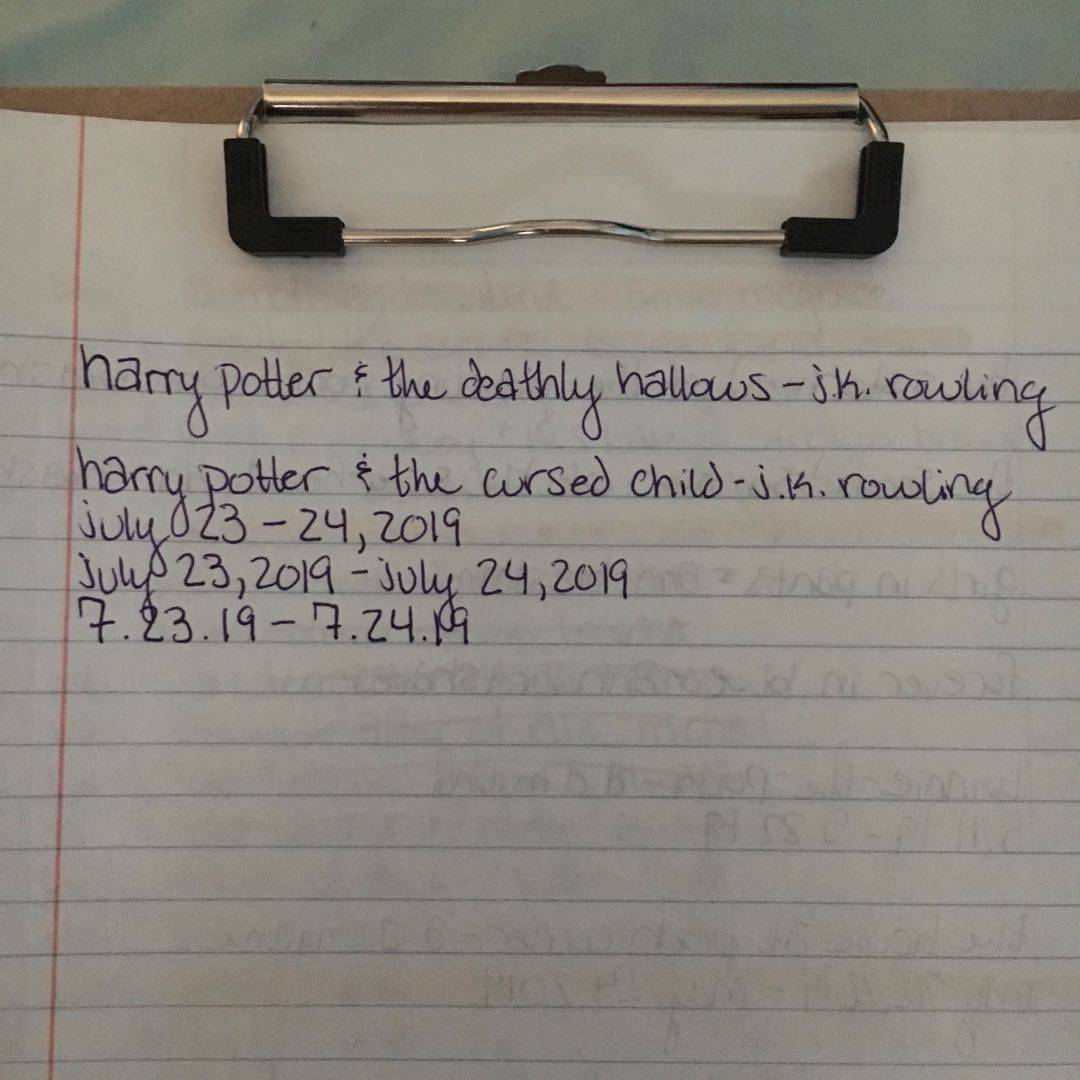 harry potter & the deathly hallows - j.k. rowling
harry potter & the cursed child - j.k. rowling
july 23 - 24, 2019
july 23, 2019 - july 24, 2019
7.23.19 - 7.24.19